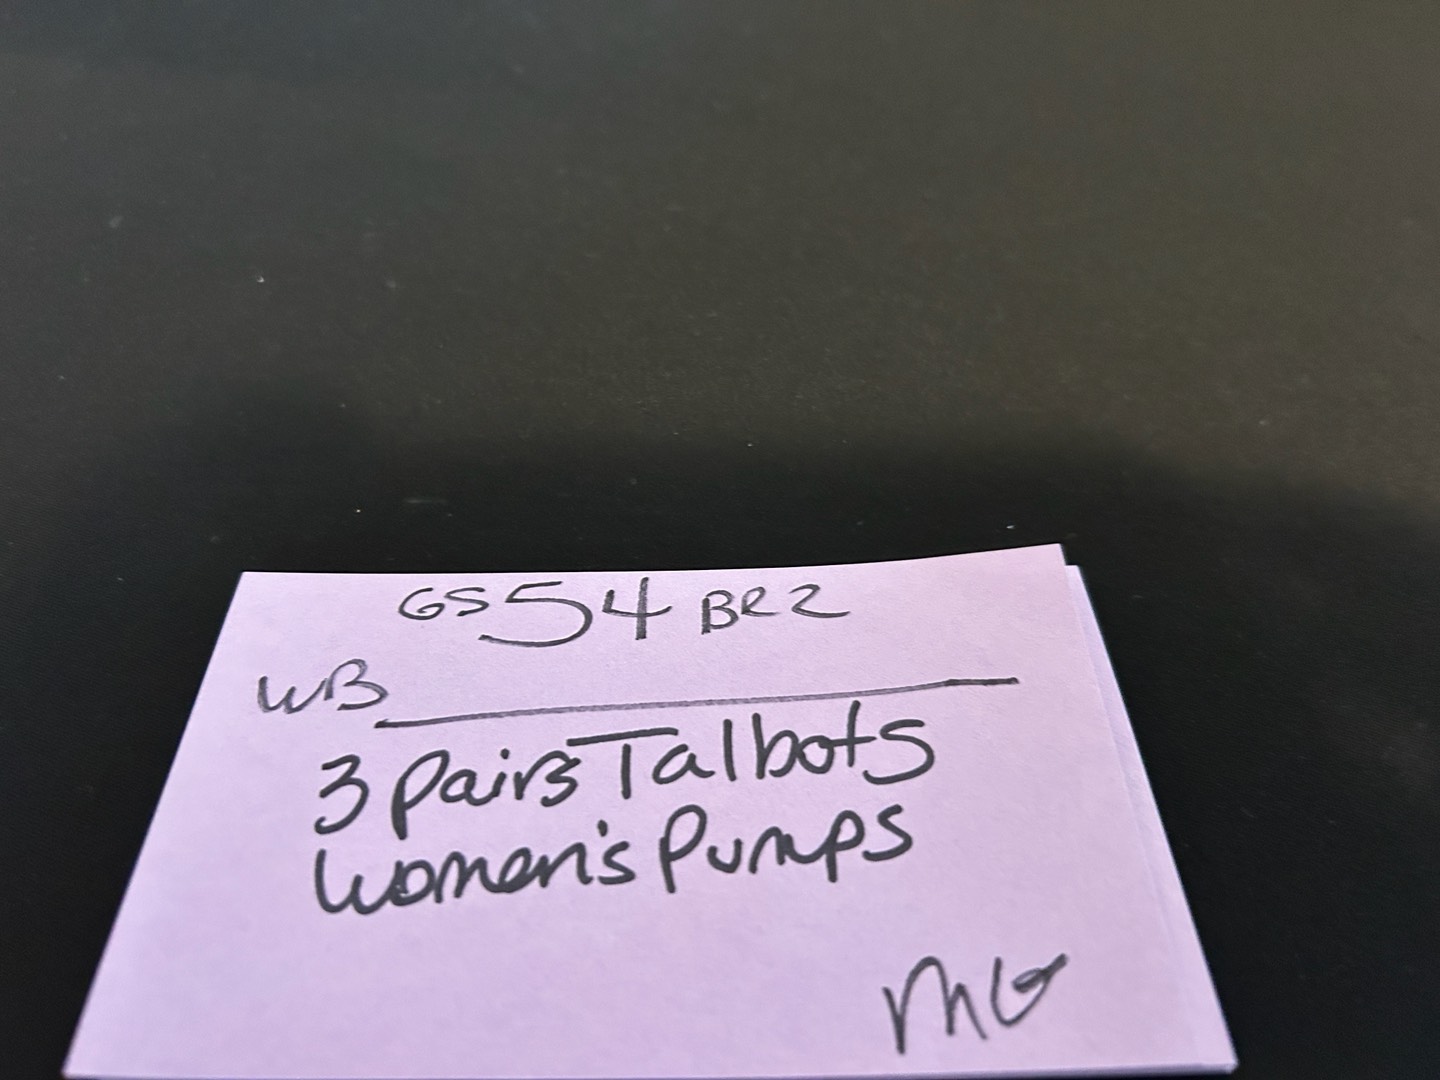 GS 54 BR2
WB
3 Pairs Talbots
Women's Pumps
MG